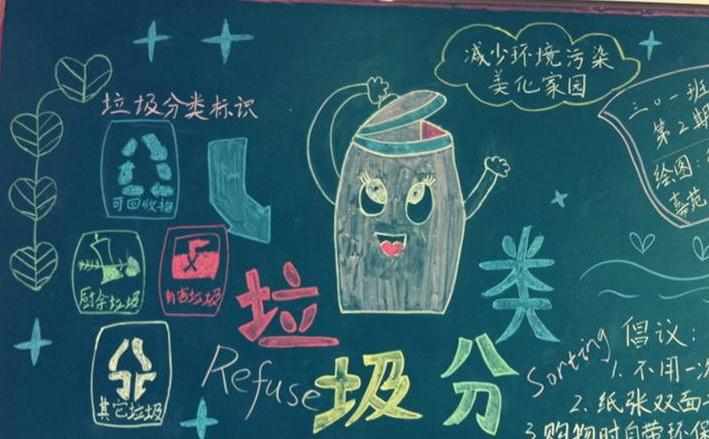 减少环境污染
美化家园
垃圾分类标识
三〇一班
第2期
绘图:
可回收物
厨余垃圾
有害垃圾
其它垃圾
垃圾分类
Refuse Sorting
倡议:
1. 不用一次
2. 纸张双面
3. 购物时自带环保